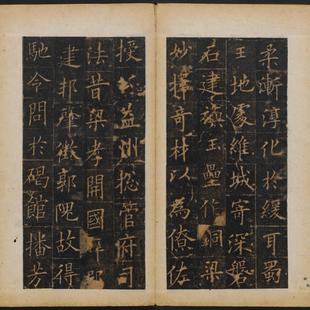 柔漸淳化於緩耳蜀
王地處維城寄深磐
石建旟玉壘作銅梁
妙擇奇材以為僚佐
授公益州總管府司
法昔梁孝開國
建邦肇徵郭隗故得
馳令問於碣館播芳